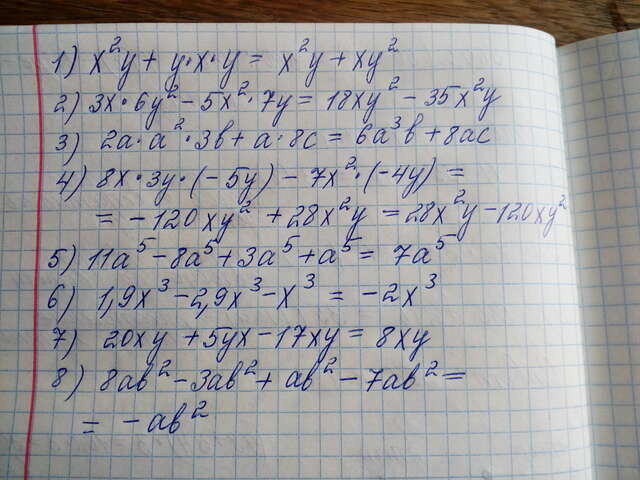 1) x²y + y·x·y = x²y + xy²
2) 3x·6y² - 5x²·7y = 18xy² - 35x²y
3) 2a·a²·3b + a·8c = 6a³b + 8ac
4) 8x·3y·(-5y) - 7x²·(-4y) =
= -120xy² + 28x²y = 28x²y - 120xy²
5) 11a⁵ - 8a⁵ + 3a⁵ + a⁵ = 7a⁵
6) 1,9x³ - 2,9x³ - x³ = -2x³
7) 20xy + 5yx - 17xy = 8xy
8) 8ab² - 3ab² + ab² - 7ab² =
= -ab²